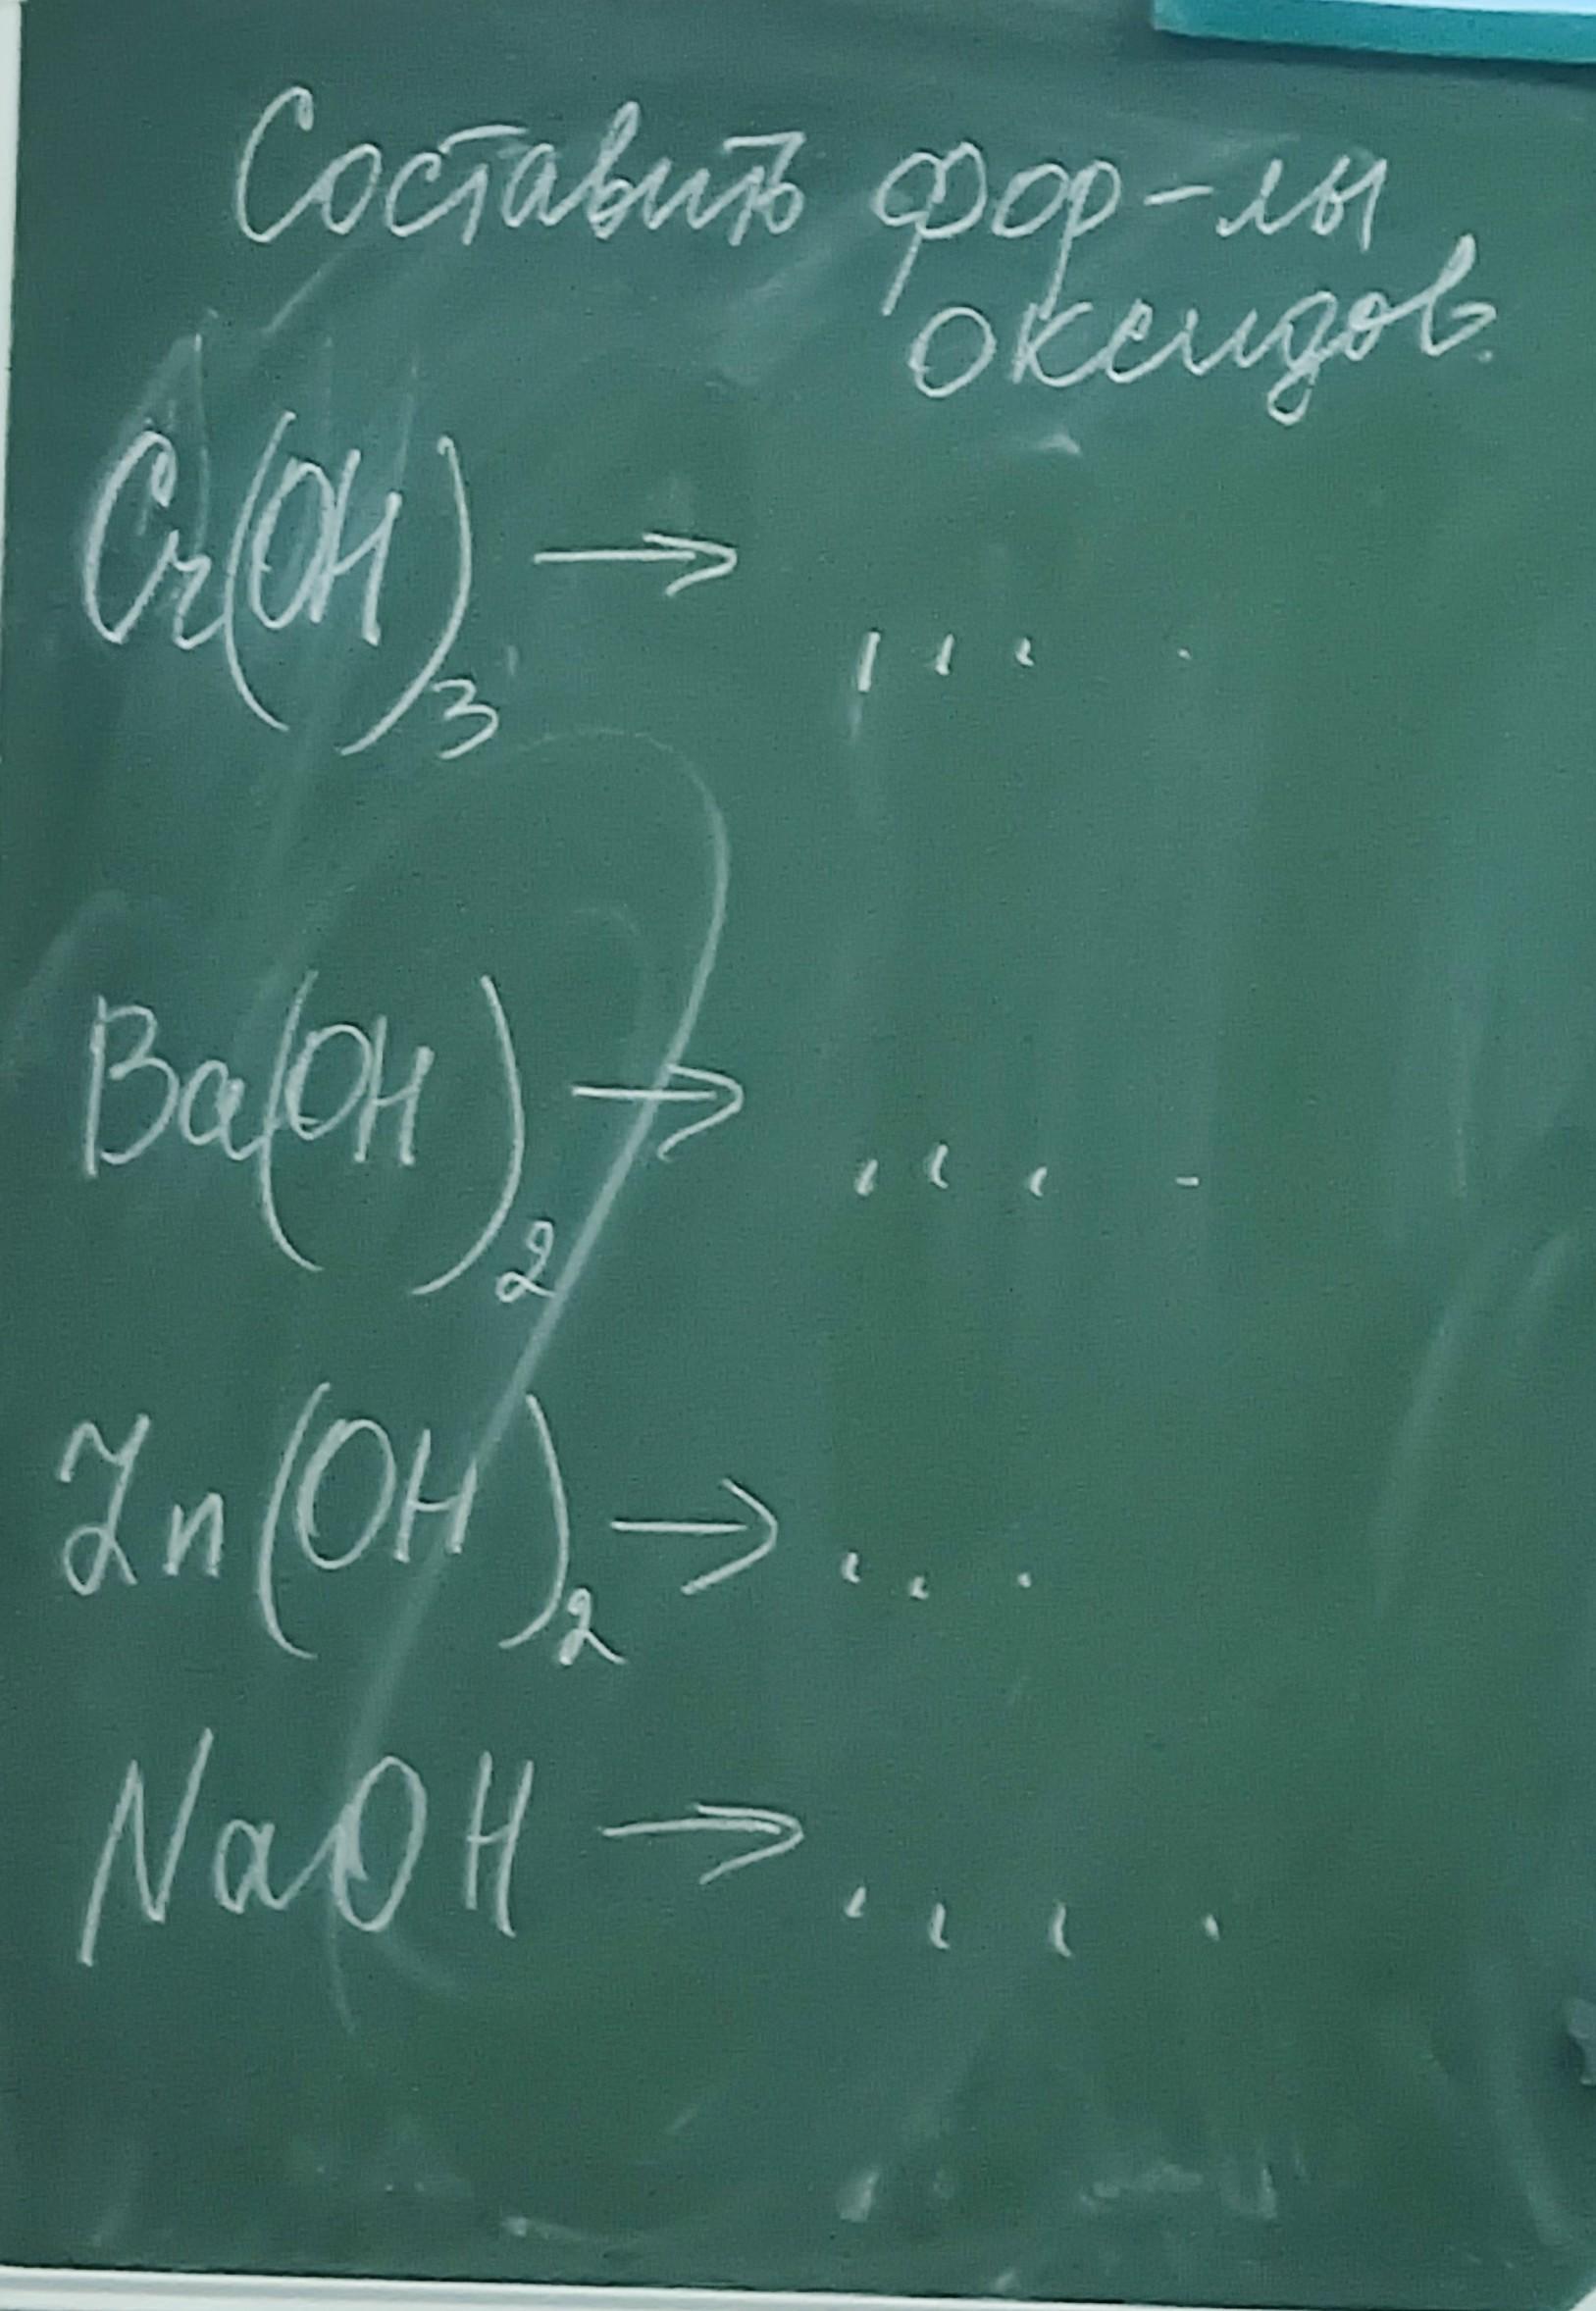 Составить фор-лы
оксидов.
Cr(OH)₃ → ....
Ba(OH)₂ → ....
Zn(OH)₂ → ...
NaOH → ....